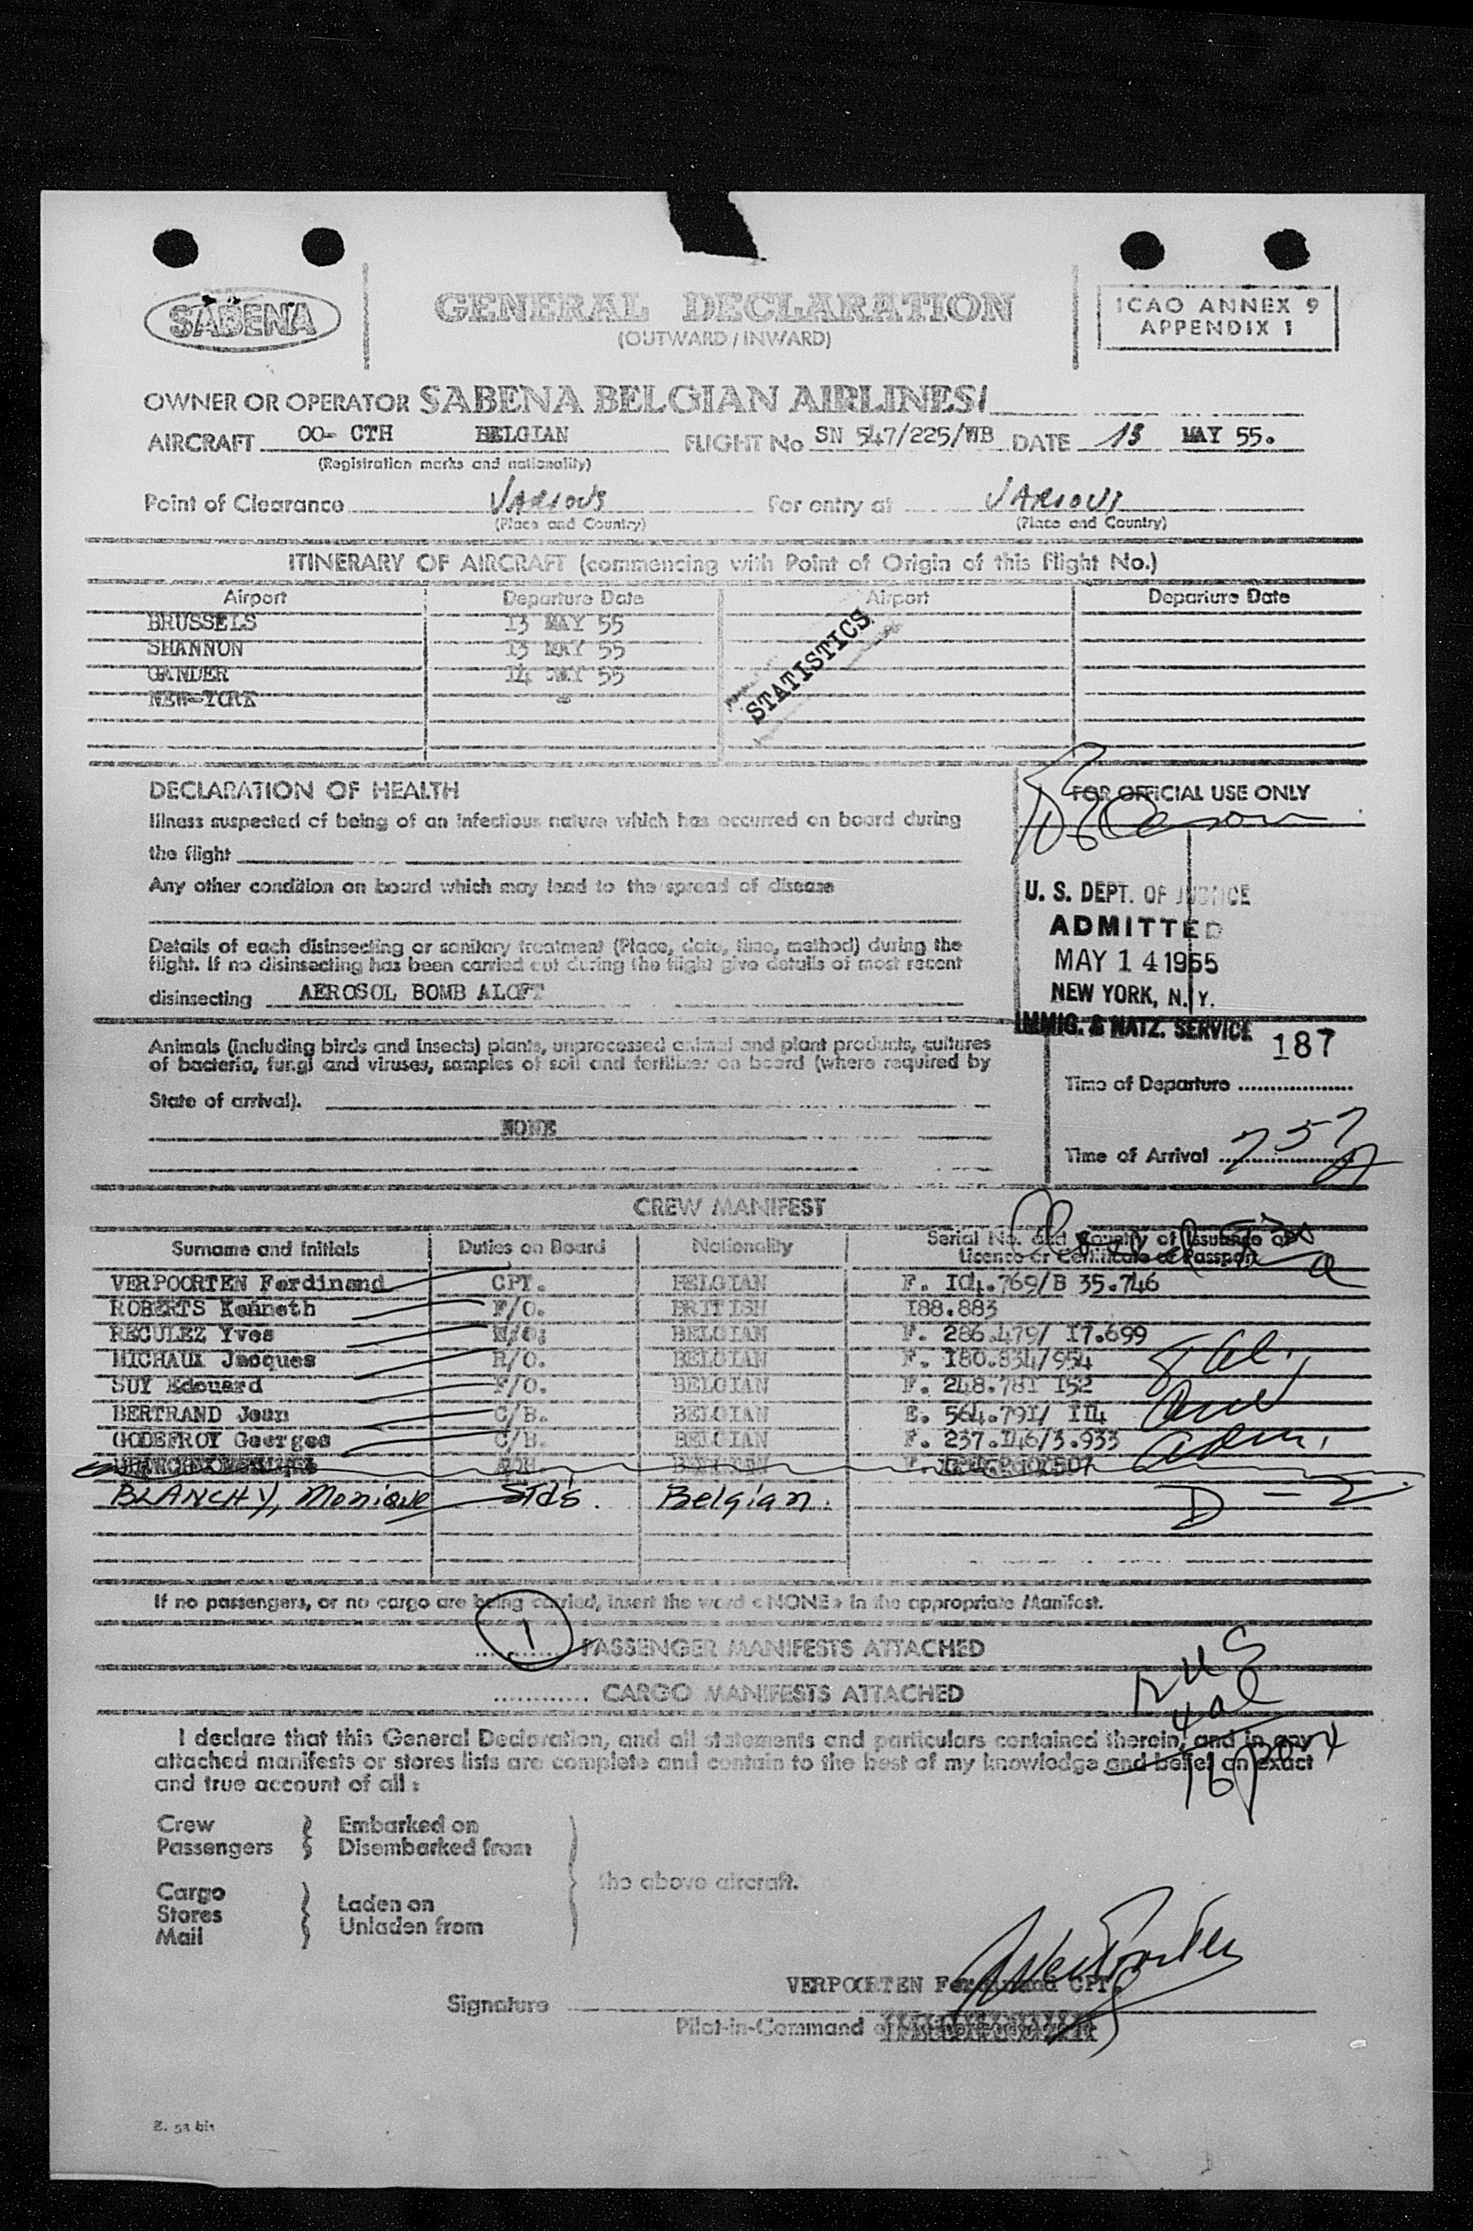 SABENA
GENERAL DECLARATION
(OUTWARD / INWARD)
ICAO ANNEX 9
APPENDIX 1
OWNER OR OPERATOR SABENA BELGIAN AIRLINES/
AIRCRAFT OO- CTH BELGIAN FLIGHT No SN 547/225/WB DATE 13 MAY 55.
(Registration marks and nationality)
Point of Clearance VARIOUS For entry at VARIOUS
(Place and Country) (Place and Country)
ITINERARY OF AIRCRAFT (commencing with Point of Origin of this flight No.)
Airport Departure Date Airport Departure Date
BRUSSELS 13 MAY 55
SHANNON 13 MAY 55
GANDER 14 MAY 55
NEW-YORK -
STATISTICS
DECLARATION OF HEALTH
Illness suspected of being of an infectious nature which has occurred on board during
the flight
Any other condition on board which may lead to the spread of disease
Details of each disinsecting or sanitary treatment (Place, date, time, method) during the
flight. If no disinsecting has been carried out during the flight give details of most recent
disinsecting AEROSOL BOMB ALOFT
FOR OFFICIAL USE ONLY
U. S. DEPT. OF JUSTICE
ADMITTED
MAY 14 1955
NEW YORK, N. Y.
IMMIG. & NATZ. SERVICE 187
Animals (including birds and insects) plants, unprocessed animal and plant products, cultures
of bacteria, fungi and viruses, samples of soil and fertilizer on board (where required by
State of arrival).
NONE
Time of Departure
Time of Arrival 757
CREW MANIFEST
Surname and Initials Duties on Board Nationality Serial No. and Country of Issuance of
Licence or Certificate or Passport
VERPOORTEN Ferdinand CPT. BELGIAN F. I04.769/B 35.746
ROBERTS Kenneth F/O. BRITISH I88.883
RECULEZ Yves N/O. BELGIAN F. 286.479/ I7.699
MICHAUX Jacques R/O. BELGIAN F. I80.834/954
SUY Edouard F/O. BELGIAN F. 248.781 I52
BERTRAND Jean C/B. BELGIAN E. 564.791/ II4
GODEFROY Georges C/B. BELGIAN F. 237.I46/3.933
BLANCHY, Monique Stds. Belgian.
8 Cl.
Crew
adm.
D - 2.
If no passengers, or no cargo are being carried, insert the word «NONE» in the appropriate Manifest.
1 PASSENGER MANIFESTS ATTACHED
CARGO MANIFESTS ATTACHED
12 US
4 al
16 pax
I declare that this General Declaration, and all statements and particulars contained therein, and in any
attached manifests or stores lists are complete and contain to the best of my knowledge and belief an exact
and true account of all :
Crew Embarked on
Passengers Disembarked from
the above aircraft.
Cargo
Stores Laden on
Mail Unladen from
VERPOORTEN Ferdinand CPT.
Signature
Pilot-in-Command
E. 58 bis